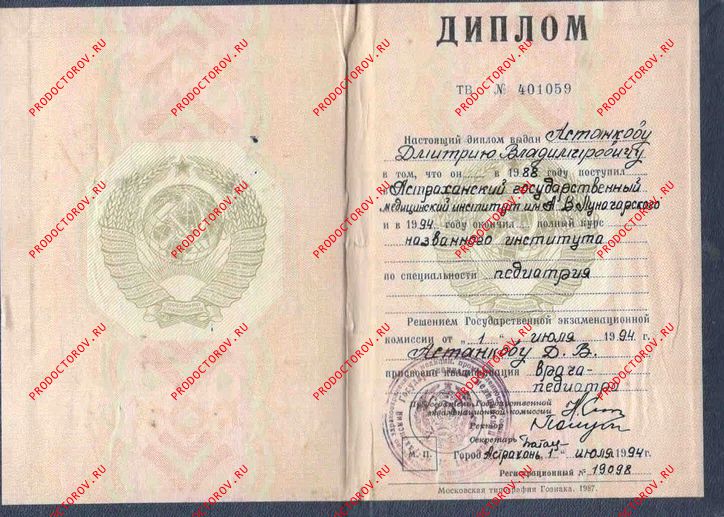 ДИПЛОМ
ТВ № 401059
Настоящий диплом выдан Астанкову
Дмитрию Владимировичу
в том, что он в 1988 году поступил
в Астраханский государственный
медицинский институт им. А.В. Луначарского
и в 1994 году окончил полный курс
названного института
по специальности педиатрия
Решением Государственной экзаменационной
комиссии от „1“ июля 1994 г.
Астанкову Д. В.
присвоена квалификация врача-
педиатра
Председатель Государственной
экзаменационной комиссии
Ректор
Секретарь
М. П. Город Астрахань, 1 “ июля 1994г.
Регистрационный № 19098
Московская типография Гознака. 1987.
PRODOCTOROV.RU